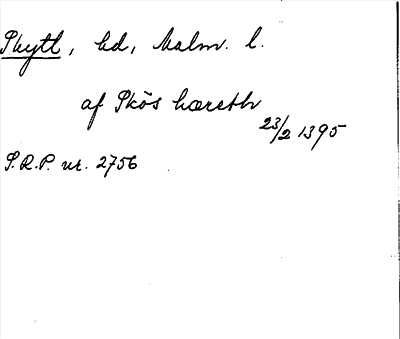 Skytt, hd, Malm. l.
af Skös hæreth
23/2 1395
S.R.P. nr. 2756